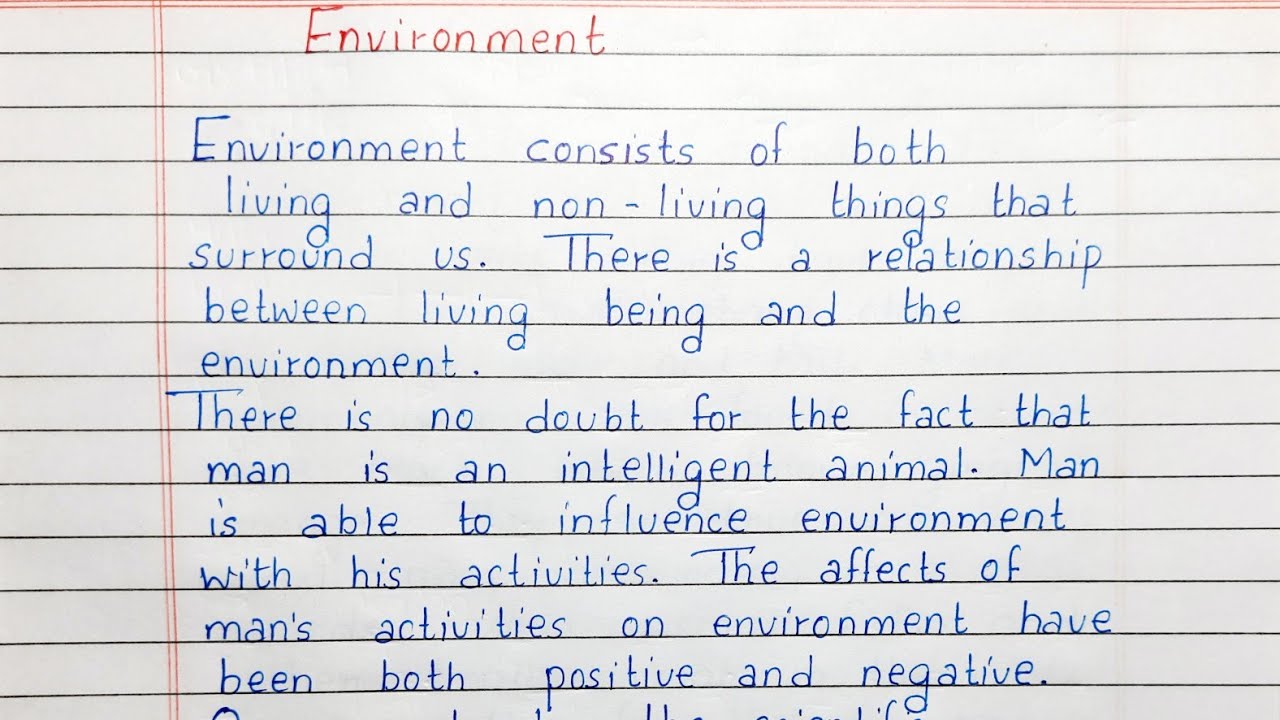 Environment
Environment consists of both
living and non-living things that
surround us. There is a relationship
between living being and the
environment.
There is no doubt for the fact that
man is an intelligent animal. Man
is able to influence environment
with his activities. The affects of
man's activities on environment have
been both positive and negative.
the